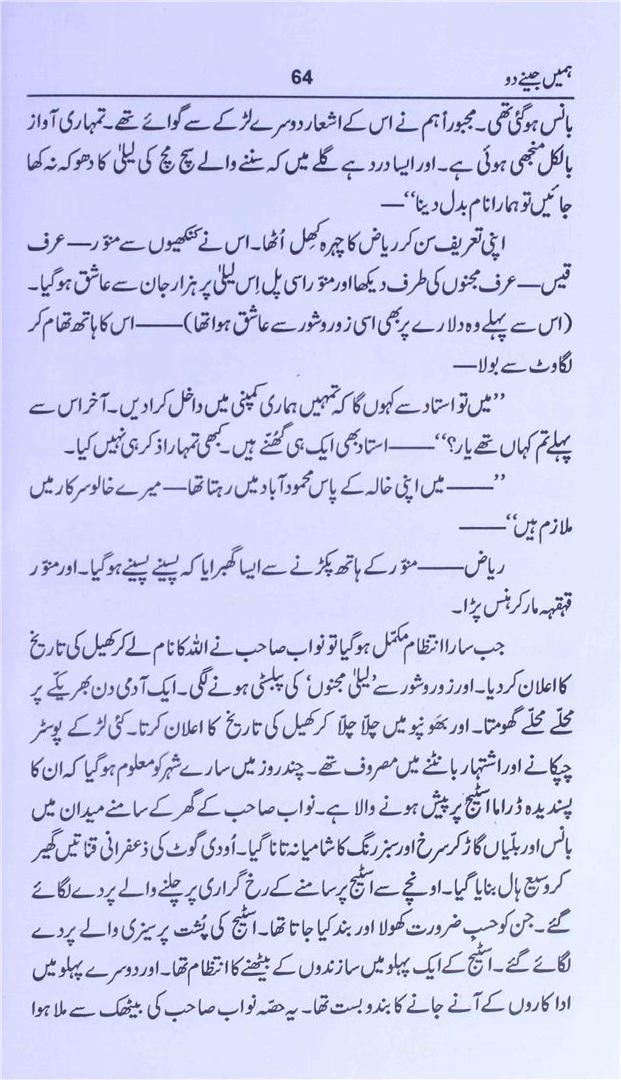 ہمیں جینے دو 64
بانس ہوگئی تھی۔ مجبوراً ہم نے اس کے اشعار دوسرے لڑکے سے گوائے تھے۔ تمہاری آواز
بالکل منجھی ہوئی ہے۔ اور ایسا درد ہے گلے میں کہ سننے والے سچ مچ کی لیلیٰ کا دھوکہ نہ کھا
جائیں تو ہمارا نام بدل دینا‘‘—
اپنی تعریف سن کر ریاض کا چہرہ کِھل اُٹھا۔ اس نے کنکھیوں سے منوّر— عرف
قیس— عرف مجنوں کی طرف دیکھا اور منوّر اسی پل اِس لیلیٰ پر ہزار جان سے عاشق ہوگیا۔
(اس سے پہلے وہ دلارے پر بھی اسی زور و شور سے عاشق ہوا تھا)—— اس کا ہاتھ تھام کر
لگاوٹ سے بولا—
’’میں تو استاد سے کہوں گا کہ تمہیں ہماری کمپنی میں داخل کرا دیں۔ آخر اس سے
پہلے تم کہاں تھے یار؟‘‘—— استاد بھی ایک ہی گُھنّے ہیں۔ کبھی تمہارا ذکر ہی نہیں کیا۔
’’—— میں اپنی خالہ کے پاس محمودآباد میں رہتا تھا— میرے خالو سرکار میں
ملازم ہیں‘‘——
ریاض—— منوّر کے ہاتھ پکڑنے سے ایسا گھبرایا کہ پسینے پسینے ہوگیا۔ اور منوّر
قہقہہ مار کر ہنس پڑا۔
جب سارا انتظام مکمّل ہوگیا تو نواب صاحب نے اللہ کا نام لے کر کھیل کی تاریخ
کا اعلان کردیا۔ اور زور و شور سے ’لیلیٰ مجنوں‘ کی پبلسٹی ہونے لگی۔ ایک آدمی دن بھر یکّے پر
محلّے محلّے گھومتا۔ اور بھونپو میں چلّا چلّا کر کھیل کی تاریخ کا اعلان کرتا۔ کئی لڑکے پوسٹر
چپکانے اور اشتہار بانٹنے میں مصروف تھے۔ چند روز میں سارے شہر کو معلوم ہوگیا کہ ان کا
پسندیدہ ڈراما اسٹیج پر پیش ہونے والا ہے۔ نواب صاحب کے گھر کے سامنے میدان میں
بانس اور بلّیاں گاڑ کر سرخ اور سبز رنگ کا شامیانہ تانا گیا۔ اُودی گوٹ کی ذعفرانی قناتیں گھیر
کر وسیع ہال بنایا گیا۔ اونچے سے اسٹیج پر سامنے کے رخ گراری پر چلنے والے پردے لگائے
گئے۔ جن کو حسبِ ضرورت کھولا اور بند کیا جاتا تھا۔ اسٹیج کی پُشت پر سیزی والے پردے
لگائے گئے۔ اسٹیج کے ایک پہلو میں سازندوں کے بیٹھنے کا انتظام تھا۔ اور دوسرے پہلو میں
اداکاروں کے آنے جانے کا بندوبست تھا۔ یہ حصّہ نواب صاحب کی بیٹھک سے ملا ہوا